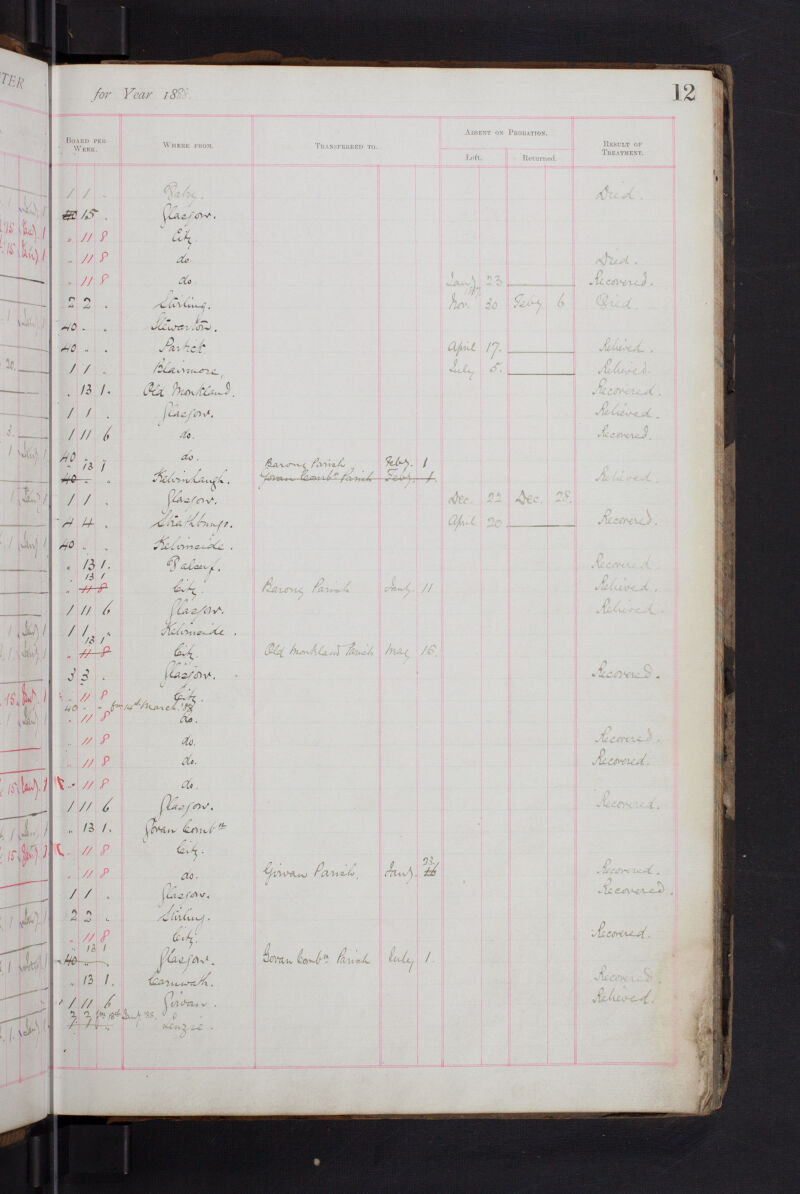 TER
for Year 1888.
12
BOARD PER WEEK.
WHERE FROM.
TRANSFERRED TO.
ABSENT ON PROBATION.
Left.
Returned.
RESULT OF TREATMENT.
1 1 . Died.
15 . Glasgow.
. 11 8 City.
. 11 8 do. Died.
. 11 8 do. Jany 23 Recovered.
2 2 . Stirling. Nov. 30 Feby 6 Died
40 . . Stewarton.
40 . . Partick April 17. Relieved.
1 1 . Blairmore, July 5. Relieved.
. 13 1. Old Monkland. Recovered.
1 1 . Glasgow. Relieved.
1 11 6 do. Recovered.
40 . . do.
. 13 1 Barony Parish Feby. 1
40 . . Kelvinhaugh. Govan Combn Parish Feby. 1. Relieved
1 1 . Glasgow. Dec. 22 Dec. 28.
4 4 . Strathbungo. April 20. Recovered.
40 . . Kelvinside.
. 13 1. Recovered
13 1
. 11 8 City. Barony Parish Jany. 11 Relieved.
1 11 6 Glasgow. Relieved.
1 1 . Kelvinside.
13 1
. 11 8 City Old Monkland Parish May 15.
3 3 . Glasgow. Recovered.
. 11 8 City.
40 . . fm 14th March. 88
. 11 8 do.
. 11 8 do. Recovered.
. 11 8 do. Recovered.
. 11 8 do.
1 11 6 Glasgow. Recovered.
. 13 1. Govan Combn
. 11 8 City.
23.
. 11 8 do. Girvan Parish, Jany. 26 Recovered.
1 1 . Glasgow. Recovered.
2 2 . Stirling.
. 11 8 City. Recovered.
. 13 1
40 . . Glasgow. Govan Combn Parish July 1.
. 13 1. Carnwath. Recovered.
1 11 6 Girvan. Relieved.
3 3 fm 18th Jany '88.
Lenzie.